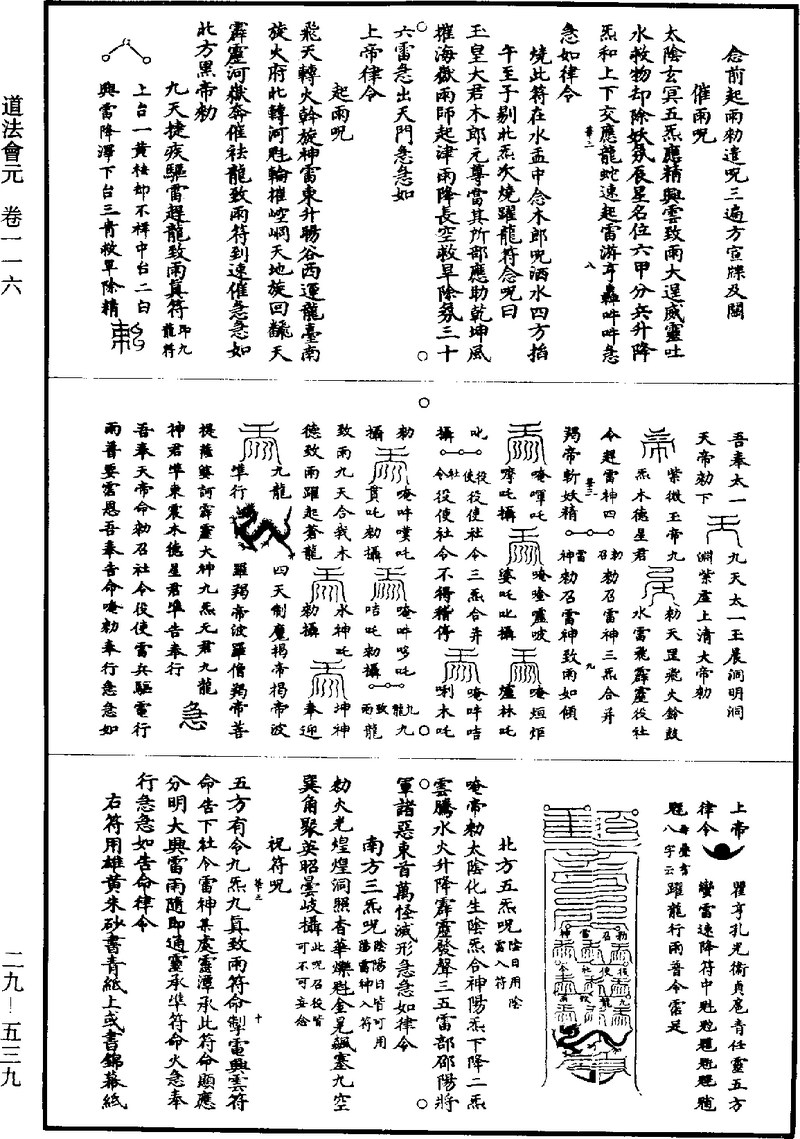 道法會元　卷一一六
二九—五三九
念前起雨勑遣呪三遍方宣牒及關
催雨呪
太陰玄冥五炁應精興雲致雨大逞威靈吐
水救物却除妖氛辰星名位六甲分兵升降
炁和上下交應龍蛇速起雷游亨轟吽吽急
急如律令
燒此符在水盂中念木郎呪洒水四方指
午至子剔北炁次燒躍龍符念呪曰
玉皇大君木郎元尊當其所部應助乾坤風
摧海嶽雨師起津雨降長空救旱除氛三十
六雷急出天門急急如
上帝律令
起雨呪
飛天轉火斡旋神雷東升暘谷西運龍臺南
旋火府北轉河魁輪摧崆峒天地旋回飜天
霹靂河嶽奔催祛龍致雨符到速催急急如
北方黑帝勑
九天捷疾驅雷趕龍致雨真符即九龍符
上台一黃祛却不祥中台二白
興雷降澤下台三青救旱除精
吾奉太一
天帝勑下
九天太一玉晨洞明洞
淵紫虛上清大帝勑
紫微玉帝九
炁木德星君
勑天罡飛火鈴鼓
水雷飛霹靂役社
令趕雷神四
揭帝斬妖精
勑召雷
勑召雷神三炁合并
神勑召雷神致雨如傾
唵㖶吒
㗶吒攝
唵㖶靈吱
婆吒叱攝
唵烜炬
爐林吒
叱
攝
役使社令
役使社令三炁合并
役使社令不得稽停
唵吽咭
唎木吒
勑
攝
唵吽㗼吒
賁吒勑攝
唵吽哆吒
咭吒勑攝
九龍致雨
九龍
致雨九天合我木
德致雨躍起蒼龍
水神吒
勑攝
坤神
奉迎
九龍
準行
四天制魔揭帝揭帝波
羅羯帝波羅僧羯帝菩
提薩婆訶霹靂大神九炁元君九龍
神君準東震木德星君準告奉行
吾奉天帝命勑召社令役使雷兵驅電行
雨普要霑恩吾奉告命唵勑奉行急急如
上帝
律令
瞿亨孔光衞貞扈青任靈五方
蠻雷速降符中魁䰢䰡魓魒魑
躍龍行雨普令霑足
北方五炁呪陰日用陰雷入符
唵帝勑太陰化生陰炁合神陽炁下降二炁
雲騰水火升降霹靂發聲三五雷部邵陽將
軍諸惡東首萬怪滅形急急如律令
南方三炁呪陰陽日皆可用陽雷神入符
勑火光煌煌洞照杳華爍魁金晃飆塞九空
巽角聚英昭曇岐攝此呪召役皆可不可妄念
祝符呪
五方有令九炁九真致雨符命掣電興雲符
命告下社令雷神某處靈潭承此符命顯應
分明大興雷雨隨即通靈承準符命火急奉
行急急如告命律令
右符用雄黃朱砂書青紙上或書錦幕紙